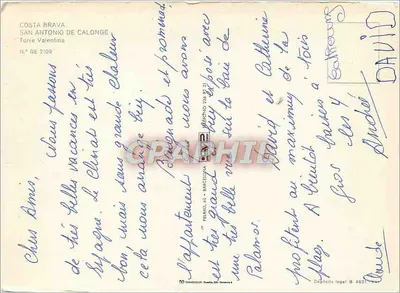 COSTA BRAVA
SAN ANTONIO DE CALONGE
Torre Valentina
N.º GE 2109
Chers Amis,
Nous passons
de très belles vacances en
Espagne. Le climat est très
bon, mais sans grande chaleur
cela nous arrange bien.
Baignade et promenade.
L'appartement que nous avons
est très grand très bien exposé avec
une très belle vue sur la baie de
Palamos.
David et Catherine
profitent au maximum de la
plage.
A bientôt baises à tous
Gros les 4
Claude
Andrée
DAVID
Catherine
CPAPHIL
PALAMÓS, 45 - BARCELONA
Depósito legal B